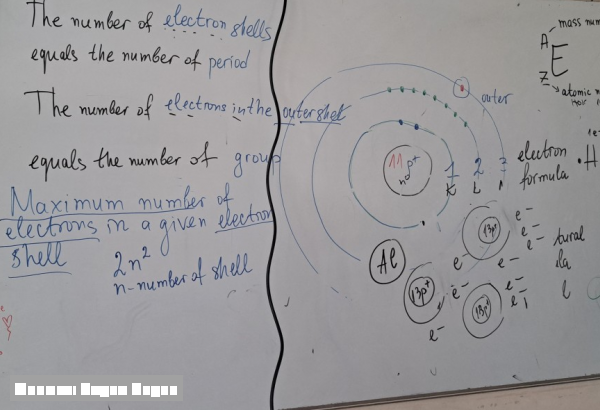 The number of electron shells
equals the number of period
The number of electrons in the outer shel
equals the number of group
Maximum number of
electrons in a given electron
shell
2n²
n-number of shell
A
mass num
E
Z
atomic n
outer
11 p⁺
n⁰
1 2 3
K L
electron
formula
.H
Al
13p⁺
e⁻
e⁻
e⁻
e⁻
e⁻
13p⁺
e⁻
e⁻
e⁻
13p⁺
e⁻
tural
la
l